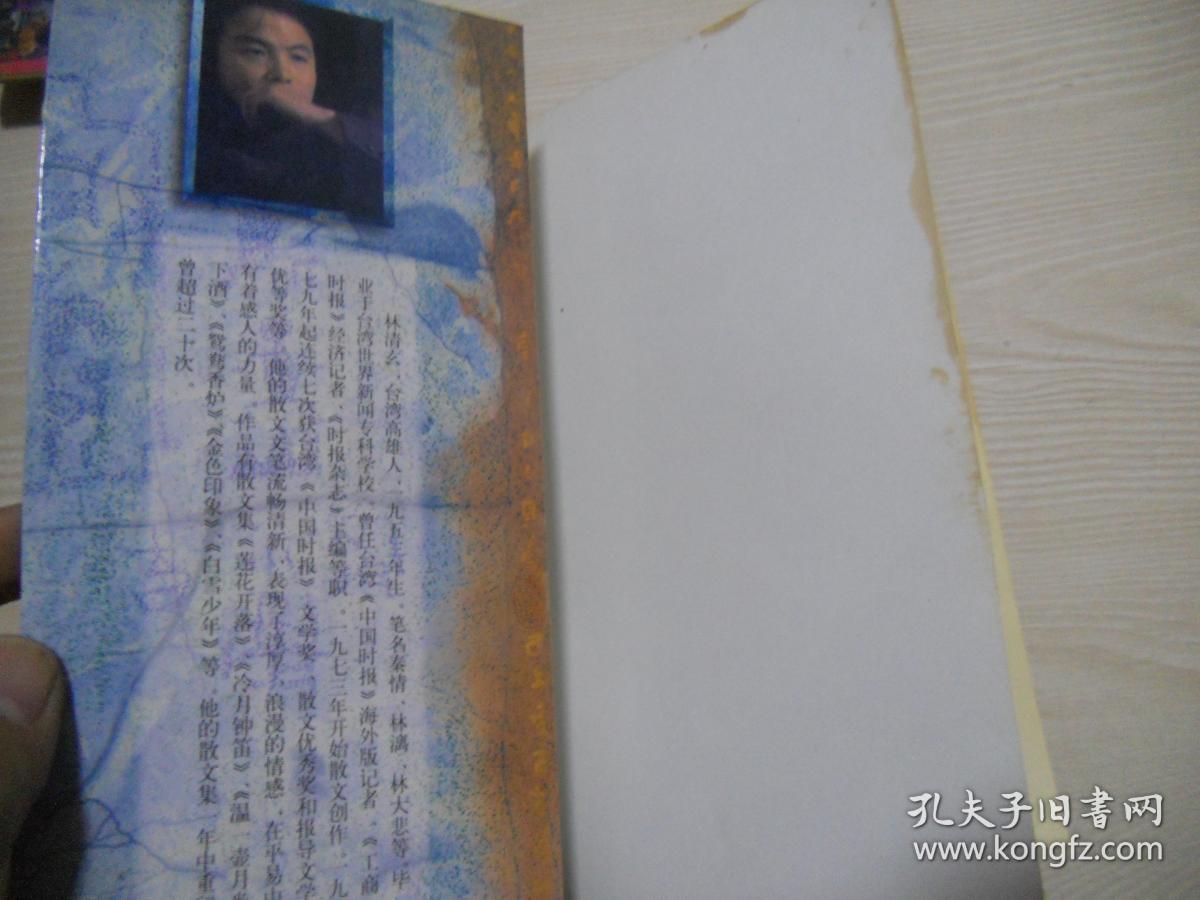 林清玄，台湾高雄人，一九五三年生。笔名秦情、林漓、林大悲等。毕
业于台湾世界新闻专科学校。曾任台湾《中国时报》海外版记者、《工商
时报》经济记者、《时报杂志》主编等职。一九七三年开始散文创作。一九
七九年起连续七次获台湾《中国时报》文学奖、散文优秀奖和报导文学
优等奖等。他的散文文笔流畅清新，表现了淳厚、浪漫的情感，在平易中
有着感人的力量。作品有散文集《莲花开落》、《冷月钟笛》、《温一壶月光
下酒》、《鸳鸯香炉》、《金色印象》、《白雪少年》等。他的散文集一年中重
曾超过二十次。
孔夫子旧书网
www.kongfz.com